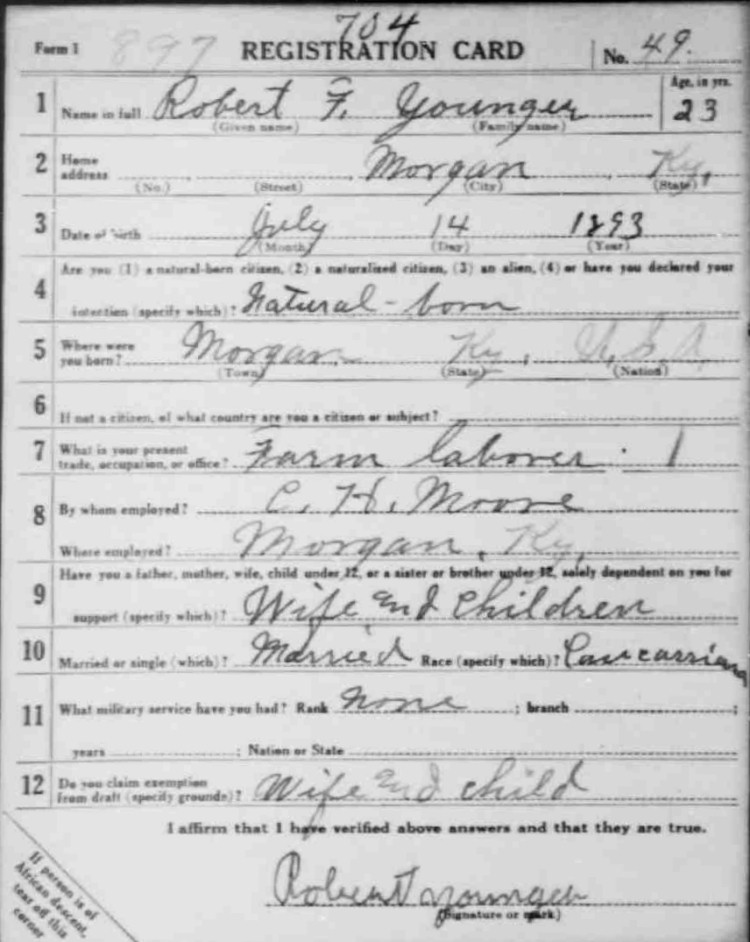 704
Form 1 897 REGISTRATION CARD No. 49.
1 Name in full Robert F. Younger Age, in yrs. 23
(Given name) (Family name)
2 Home address Morgan Ky.
(No.) (Street) (City) (State)
3 Date of birth July 14 1893
(Month) (Day) (Year)
4 Are you (1) a natural-born citizen, (2) a naturalized citizen, (3) an alien, (4) or have you declared your
intention (specify which)? Natural-born
5 Where were you born? Morgan Ky. U.S.A.
(Town) (State) (Nation)
6 If not a citizen, of what country are you a citizen or subject?
7 What is your present trade, occupation, or office? Farm laborer. 1
8 By whom employed? C. H. Moore
Where employed? Morgan, Ky.
9 Have you a father, mother, wife, child under 12, or a sister or brother under 12, solely dependent on you for
support (specify which)? Wife and Children
10 Married or single (which)? Married Race (specify which)? Caucarrian
11 What military service have you had? Rank None ; branch ;
years ; Nation or State
12 Do you claim exemption from draft (specify grounds)? Wife and child
I affirm that I have verified above answers and that they are true.
Robert Younger
(Signature or mark)
If person is of
African descent,
tear off this
corner